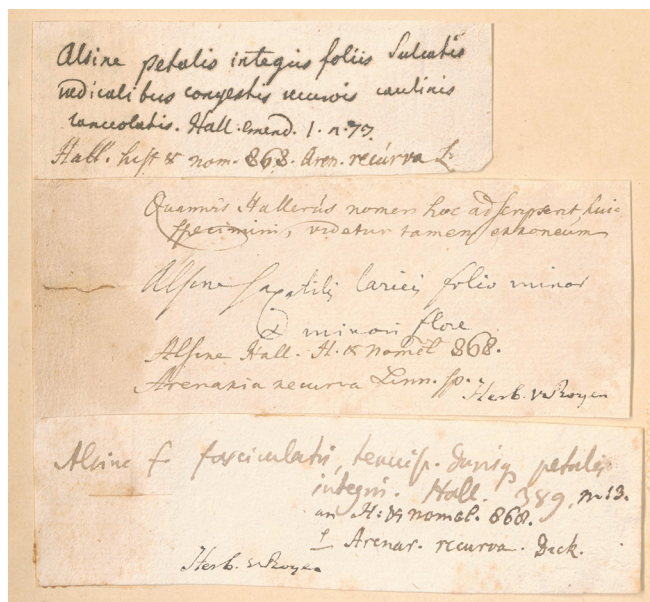 Alsine petalis integris foliis sulcatis
radicalibus congestis recurvis caulinis
lanceolatis. Hall. Emend. 1. n. 77.
Hall. hist & nom. 868. Aren. recurva L.
Quamvis Hallerus nomen hoc adscripserit huic
specimini, videtur tamen erroneum
Alsine saxatilis laricis folio minor
& minori flore
Alsine Hall. H. & nomcl 868.
Arenaria recurva Linn. sp.
Herb. v. Royen
Alsine f. fasciculatis, tenuiss. petalis
integris. Hall. 389. n. 13.
an H. & nomcl. 868.
Arenar. recurva. Dick.
Herb. v. Royen